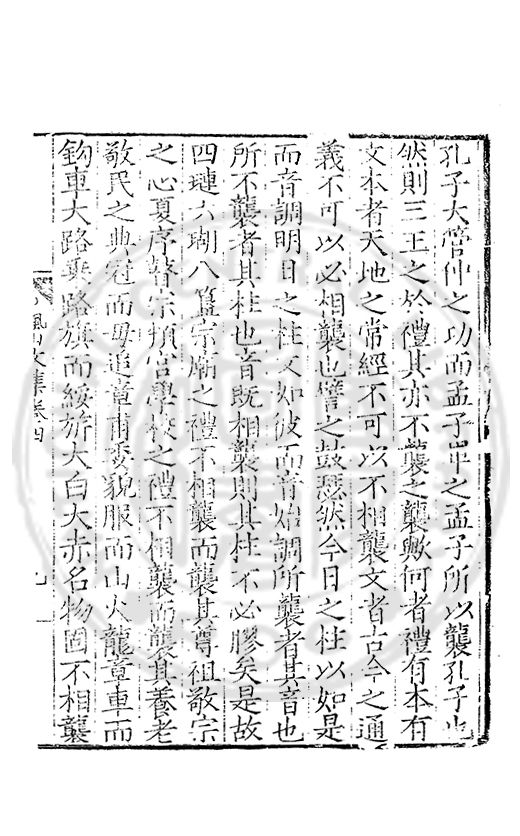 孔子大管仲之功而孟子卑之孟子所以襲孔子也
然則三王之於禮其亦不襲之襲歟何者禮有本有
文本者天地之常經不可以不相襲文者古今之通
義不可以必相襲也譬之鼓瑟然今日之柱以如是
而音調明日之柱又如彼而音始調所襲者其音也
所不襲者其柱也音既相襲則其柱不必膠矣是故
四璉六瑚八簋宗廟之禮不相襲而襲其尊祖敬宗
之心夏序瞽宗頖宮學校之禮不相襲而襲其養老
敬民之典冠而毋追章甫委貌服而山火龍章車而
鈎車大路乗路旗而綏旂大白大赤名物固不相襲
文集卷四
九